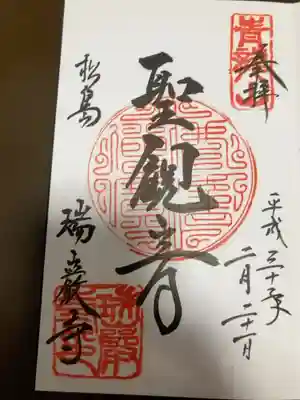 奉拝
平成三十年
二月二十一日
聖観音
松島
瑞巖寺